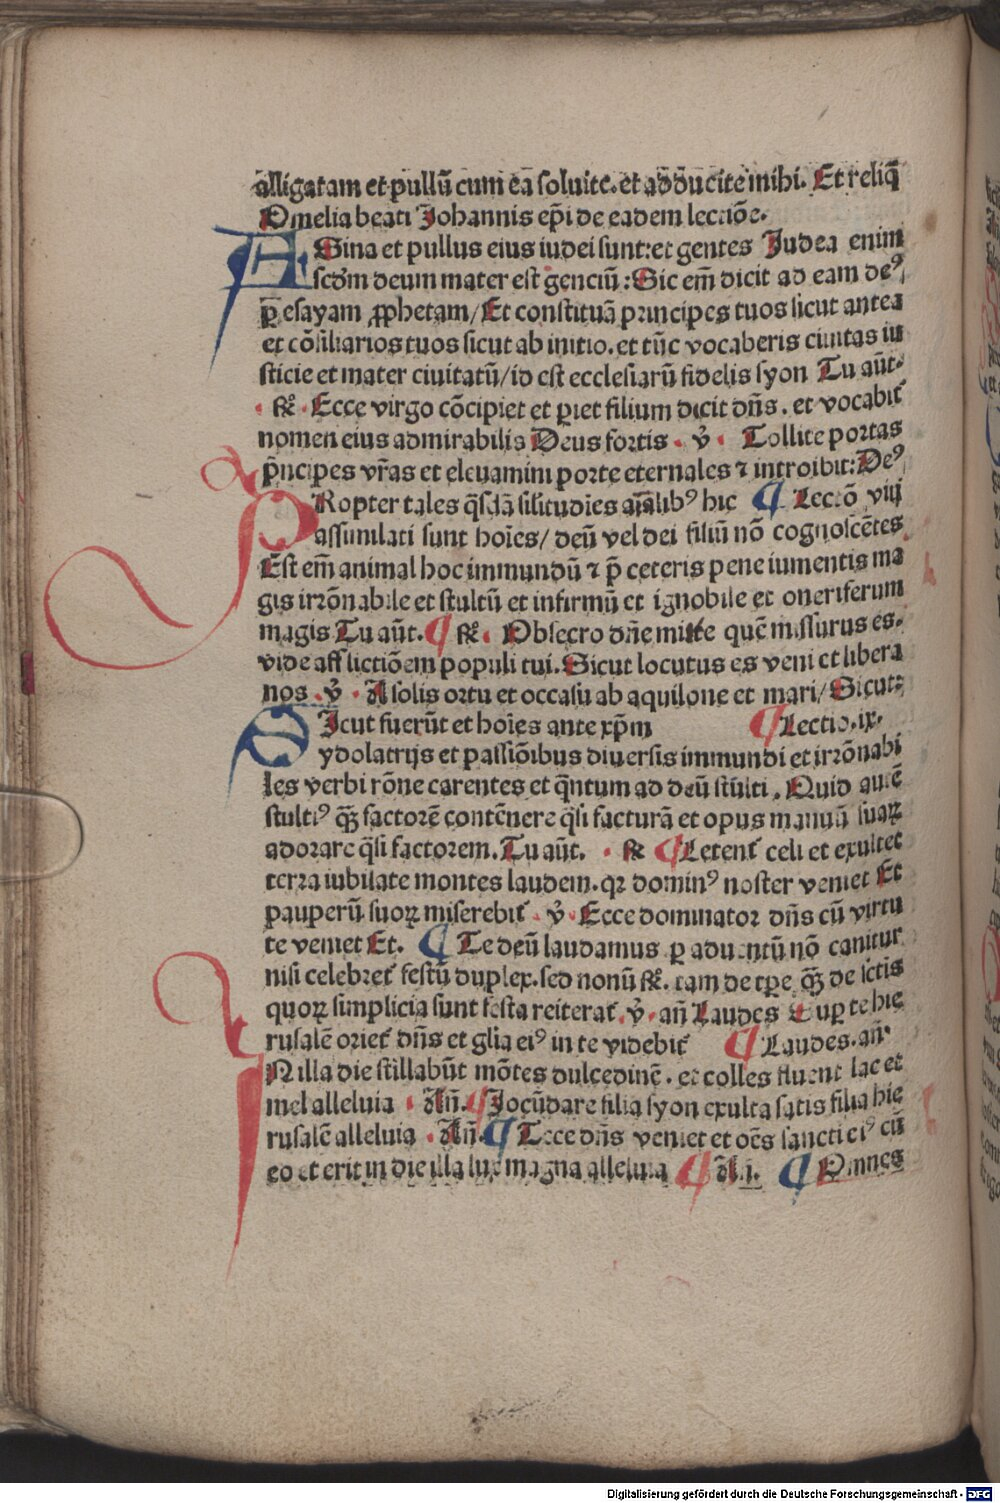 alligatam et pullū cum eā soluite. et adducite mihi. Et reliq̄
Omelia beati Johannis ep̄i de eadem lectiōe.
ASina et pullus eius iudei sunt: et gentes Judea enim
scd̄m deum mater est genciū: Sic em̄ dicit ad eam deꝰ
p̄ esayam ꝓphetam/ Et constituā principes tuos sicut antea
et cōsiliarios tuos sicut ab initio. et tūc vocaberis ciuitas iu
sticie et mater ciuitatū/ id est ecclesiarū fidelis syon Tu aūt.
℟. Ecce virgo cōcipiet et pariet filium dicit dn̄s. et vocabit᷑
nomen eius admirabilis Deus fortis. ℣. Tollite portas
p̄ncipes vr̄as et eleuamini porte eternales ⁊ introibit: Deꝰ
PRopter tales q̄sdā silitudīes aīalibꝰ hic ¶ Lectō viij
assimilati sunt hoīes/ deū vel dei filiū nō cognoscētes
Est em̄ animal hoc immundū ⁊ p̄ ceteris pene iumentis ma
gis irrōnabile et stultū et infirmū et ignobile et oneriferum
magis Tu aūt. ¶ ℟. Obsecro dn̄e mitte quē missurus es.
vide afflictiōem populi tui. Sicut locutus es veni et libera
nos. ℣. A solis ortu et occasu ab aquilone et mari/ Sicut:
SIcut fuerūt et hoīes ante xp̄m ¶ Lectio. ix.
ydolatrijs et passiōibus diuersis immundi et irrōnabi
les verbi rōne carentes et q̄ntum ad deū stulti. Quid autē
stultiꝰ q̄ꝫ factorē contēnere q̄si facturā et opus manuū suaꝝ
adorare q̄si factorem. Tu aūt. ℟ ¶ Letent᷑ celi et exultet
terra iubilate montes laudem. qꝛ dominꝰ noster veniet Et
pauperū suoꝝ miserebit᷑. ℣. Ecce dominator dn̄s cū virtu
te veniet Et. ¶ Te deū laudamus ꝑ aduentū nō canitur
nisi celebret᷑ festū duplex. sed nonū ℟. tam de tꝑe q̄ꝫ de sctīs
quoꝝ simplicia sunt festa reiterat᷑. ℣. an̄ Laudes Suꝑ te hie
rusalē oriet᷑ dn̄s et gl̄ia eiꝰ in te videbit᷑ ¶ Laudes. an̄.
IN illa die stillabūt mōtes dulcedinē. et colles fluent lac et
mel alleluia. Añ. ¶ Jocūdare filia syon exulta satis filia hie
rusalē alleluia. Añ. ¶ Ecce dn̄s veniet et oēs sancti eiꝰ cū
eo et erit in die illa lux magna alleluia ¶ Añ. ¶ Omnes
Digitalisierung gefördert durch die Deutsche Forschungsgemeinschaft - DFG